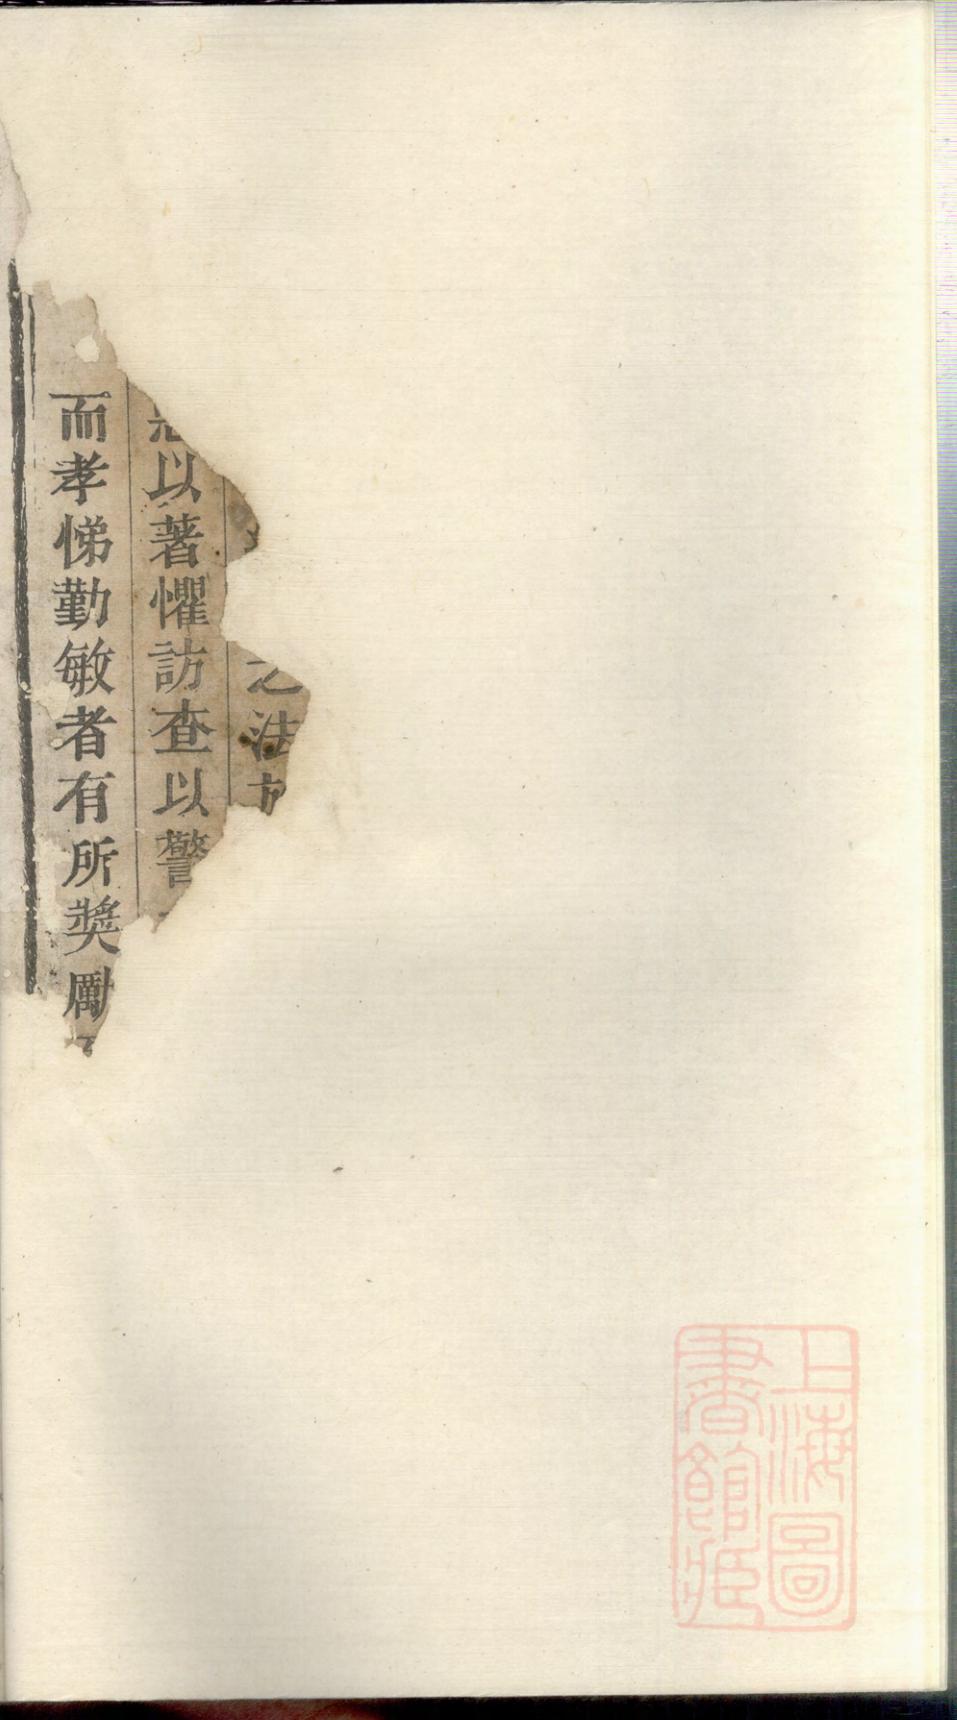 之法
以著懼訪查以警
而孝悌勤敏者有所獎勵
上海圖
書館藏